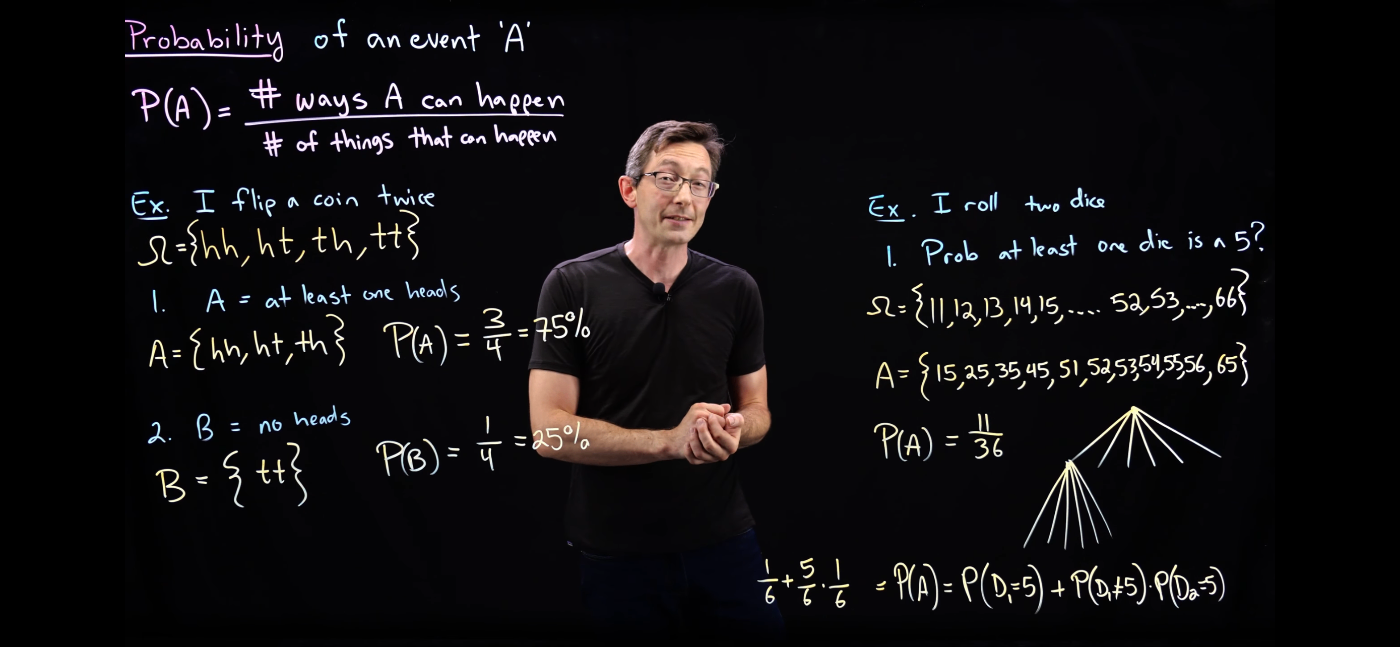 Probability of an event 'A'
P(A) = # ways A can happen / # of things that can happen
Ex. I flip a coin twice
Ω={hh, ht, th, tt}
1. A = at least one heads
A={hh, ht, th} P(A) = 3/4 = 75%
2. B = no heads
B = {tt} P(B) = 1/4 = 25%
Ex. I roll two dice
1. Prob at least one die is a 5?
Ω={11,12,13,14,15,.... 52,53,...,66}
A={15,25,35,45,51,52,53,54,55,56,65}
P(A) = 11/36
1/6 + 5/6 · 1/6 = P(A) = P(D₁=5) + P(D₁≠5)·P(D₂=5)